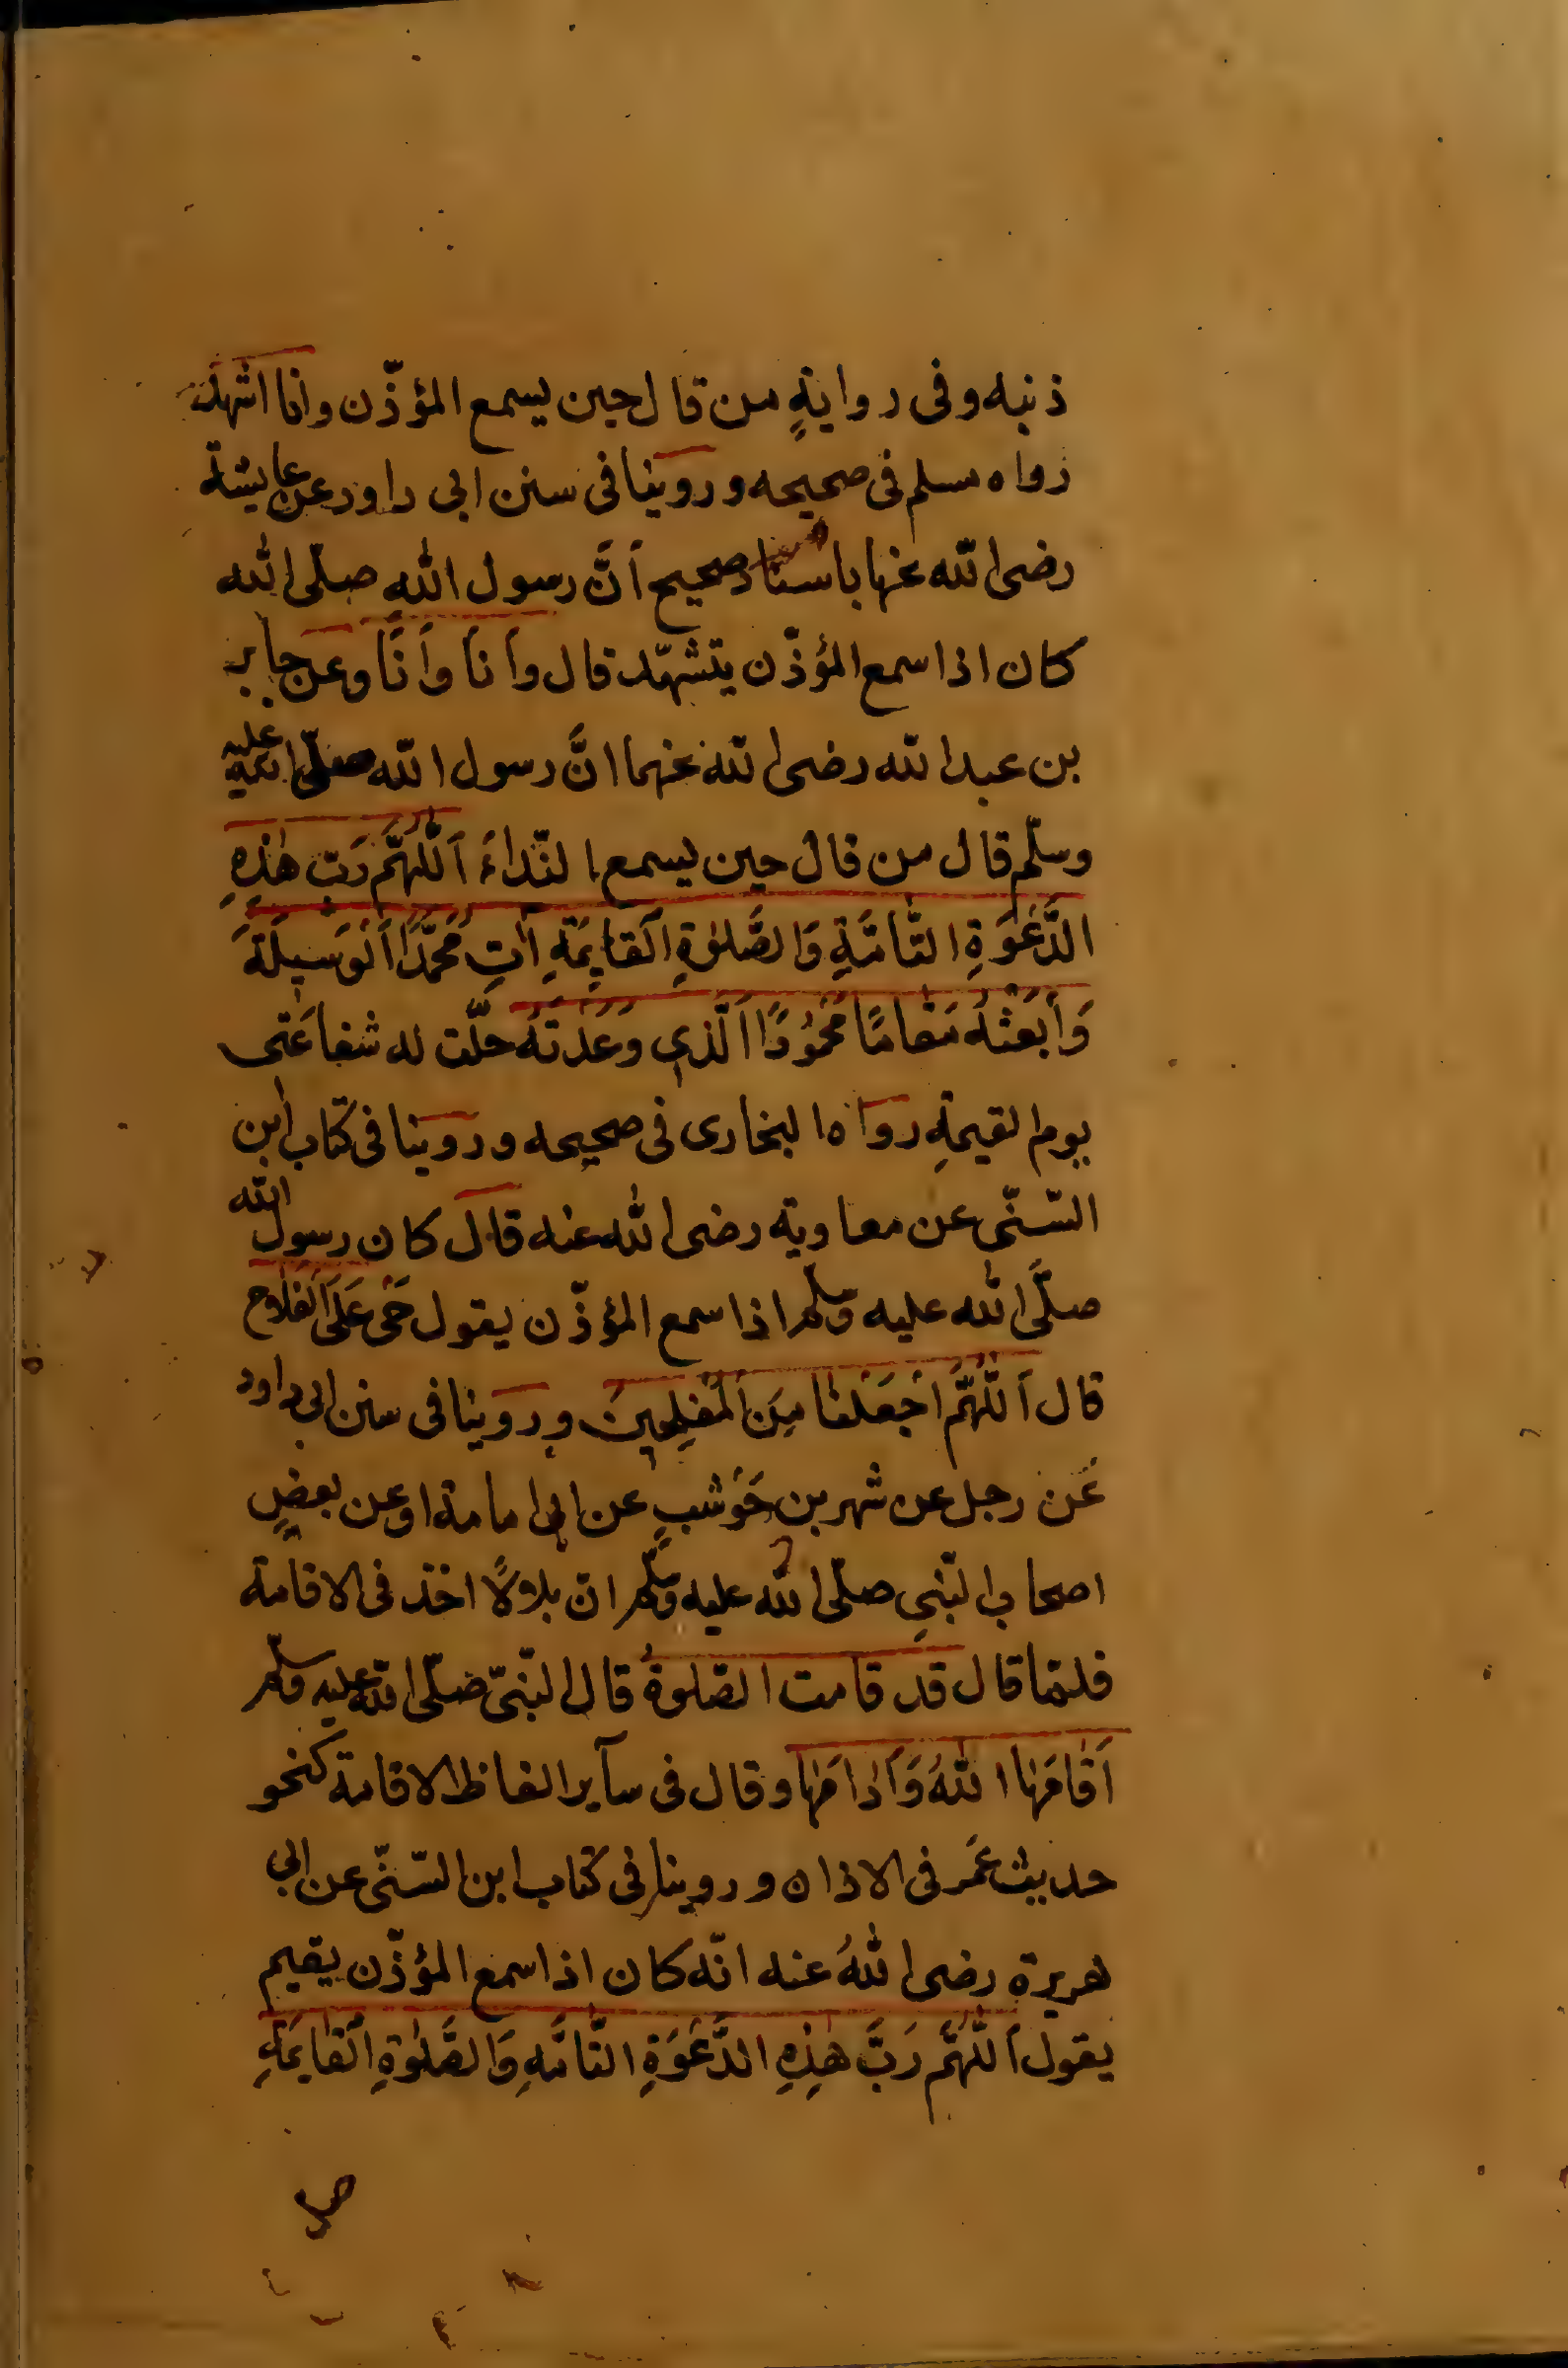 ذنبه وفى روايةٍ من قال حين يسمع المؤذّن وانا اشهد
رواه مسلم فى صحيحه و روينا فى سنن ابى داود عن عايشة
رضى الله عنها باسناد صحيح اَنَّ رسول الله صلّى الله
كان اذا سمع المؤذّن يتشهّد قال وأنا وأنا وعن جابر
بن عبد الله رضى الله عنهما انَّ رسول الله صلّى الله عليه
وسلّم قال من قال حين يسمع النّداءَ اَللّٰهُمَّ رَبَّ هٰذِهِ
الدَّعْوَةِ التّامَّةِ وَالصَّلٰوةِ اَلْقايِمَةِ آتِ مُحَمَّدًا اَلْوَسيلَةَ
وَاَبْعَثْهُ مَقامًا مَحْمُودًا اَلَّذى وَعَدْتَهُ حلّت له شفاعَتى
يوم القيمةِ رواه البخارى فى صحيحه و روينا فى كتاب ابن
السّنّى عن معاوية رضى الله عنه قال كان رسول الله
صلَّى الله عليه وسلّم اذا سمع المؤذّن يقول حَىَّ عَلَى اَلْفَلاح
قال اَللّٰهُمَّ اجْعَلْنا مِنَ اَلْمُفْلِحينَ و روينا فى سنن ابى داود
عَن رجل عن شهر بن حَوْشبٍ عن ابى امامة او عن بعضِ
اصحاب النّبى صلّى الله عليه وسلّم انّ بلالًا اخذ فى الاقامة
فلمّا قال قد قامت الصّلوةُ قال النّبىّ صلّى الله عليه وسلّم
اَقامَها اللّٰهُ وَاَدامَها وقال فى سآير الفاظ الاقامة كنحو
حديث عُمَر فى الاذان و روينا فى كتاب ابن السّنّى عن ابى
هريرة رضى اللهُ عنه انّه كان اذا سمع المؤذّن يقيم
يقول اَللّٰهُمَّ رَبَّ هٰذِهِ الدَّعْوَةِ التّامَّةِ وَالصَّلٰوةِ اَلْقايِمَةِ